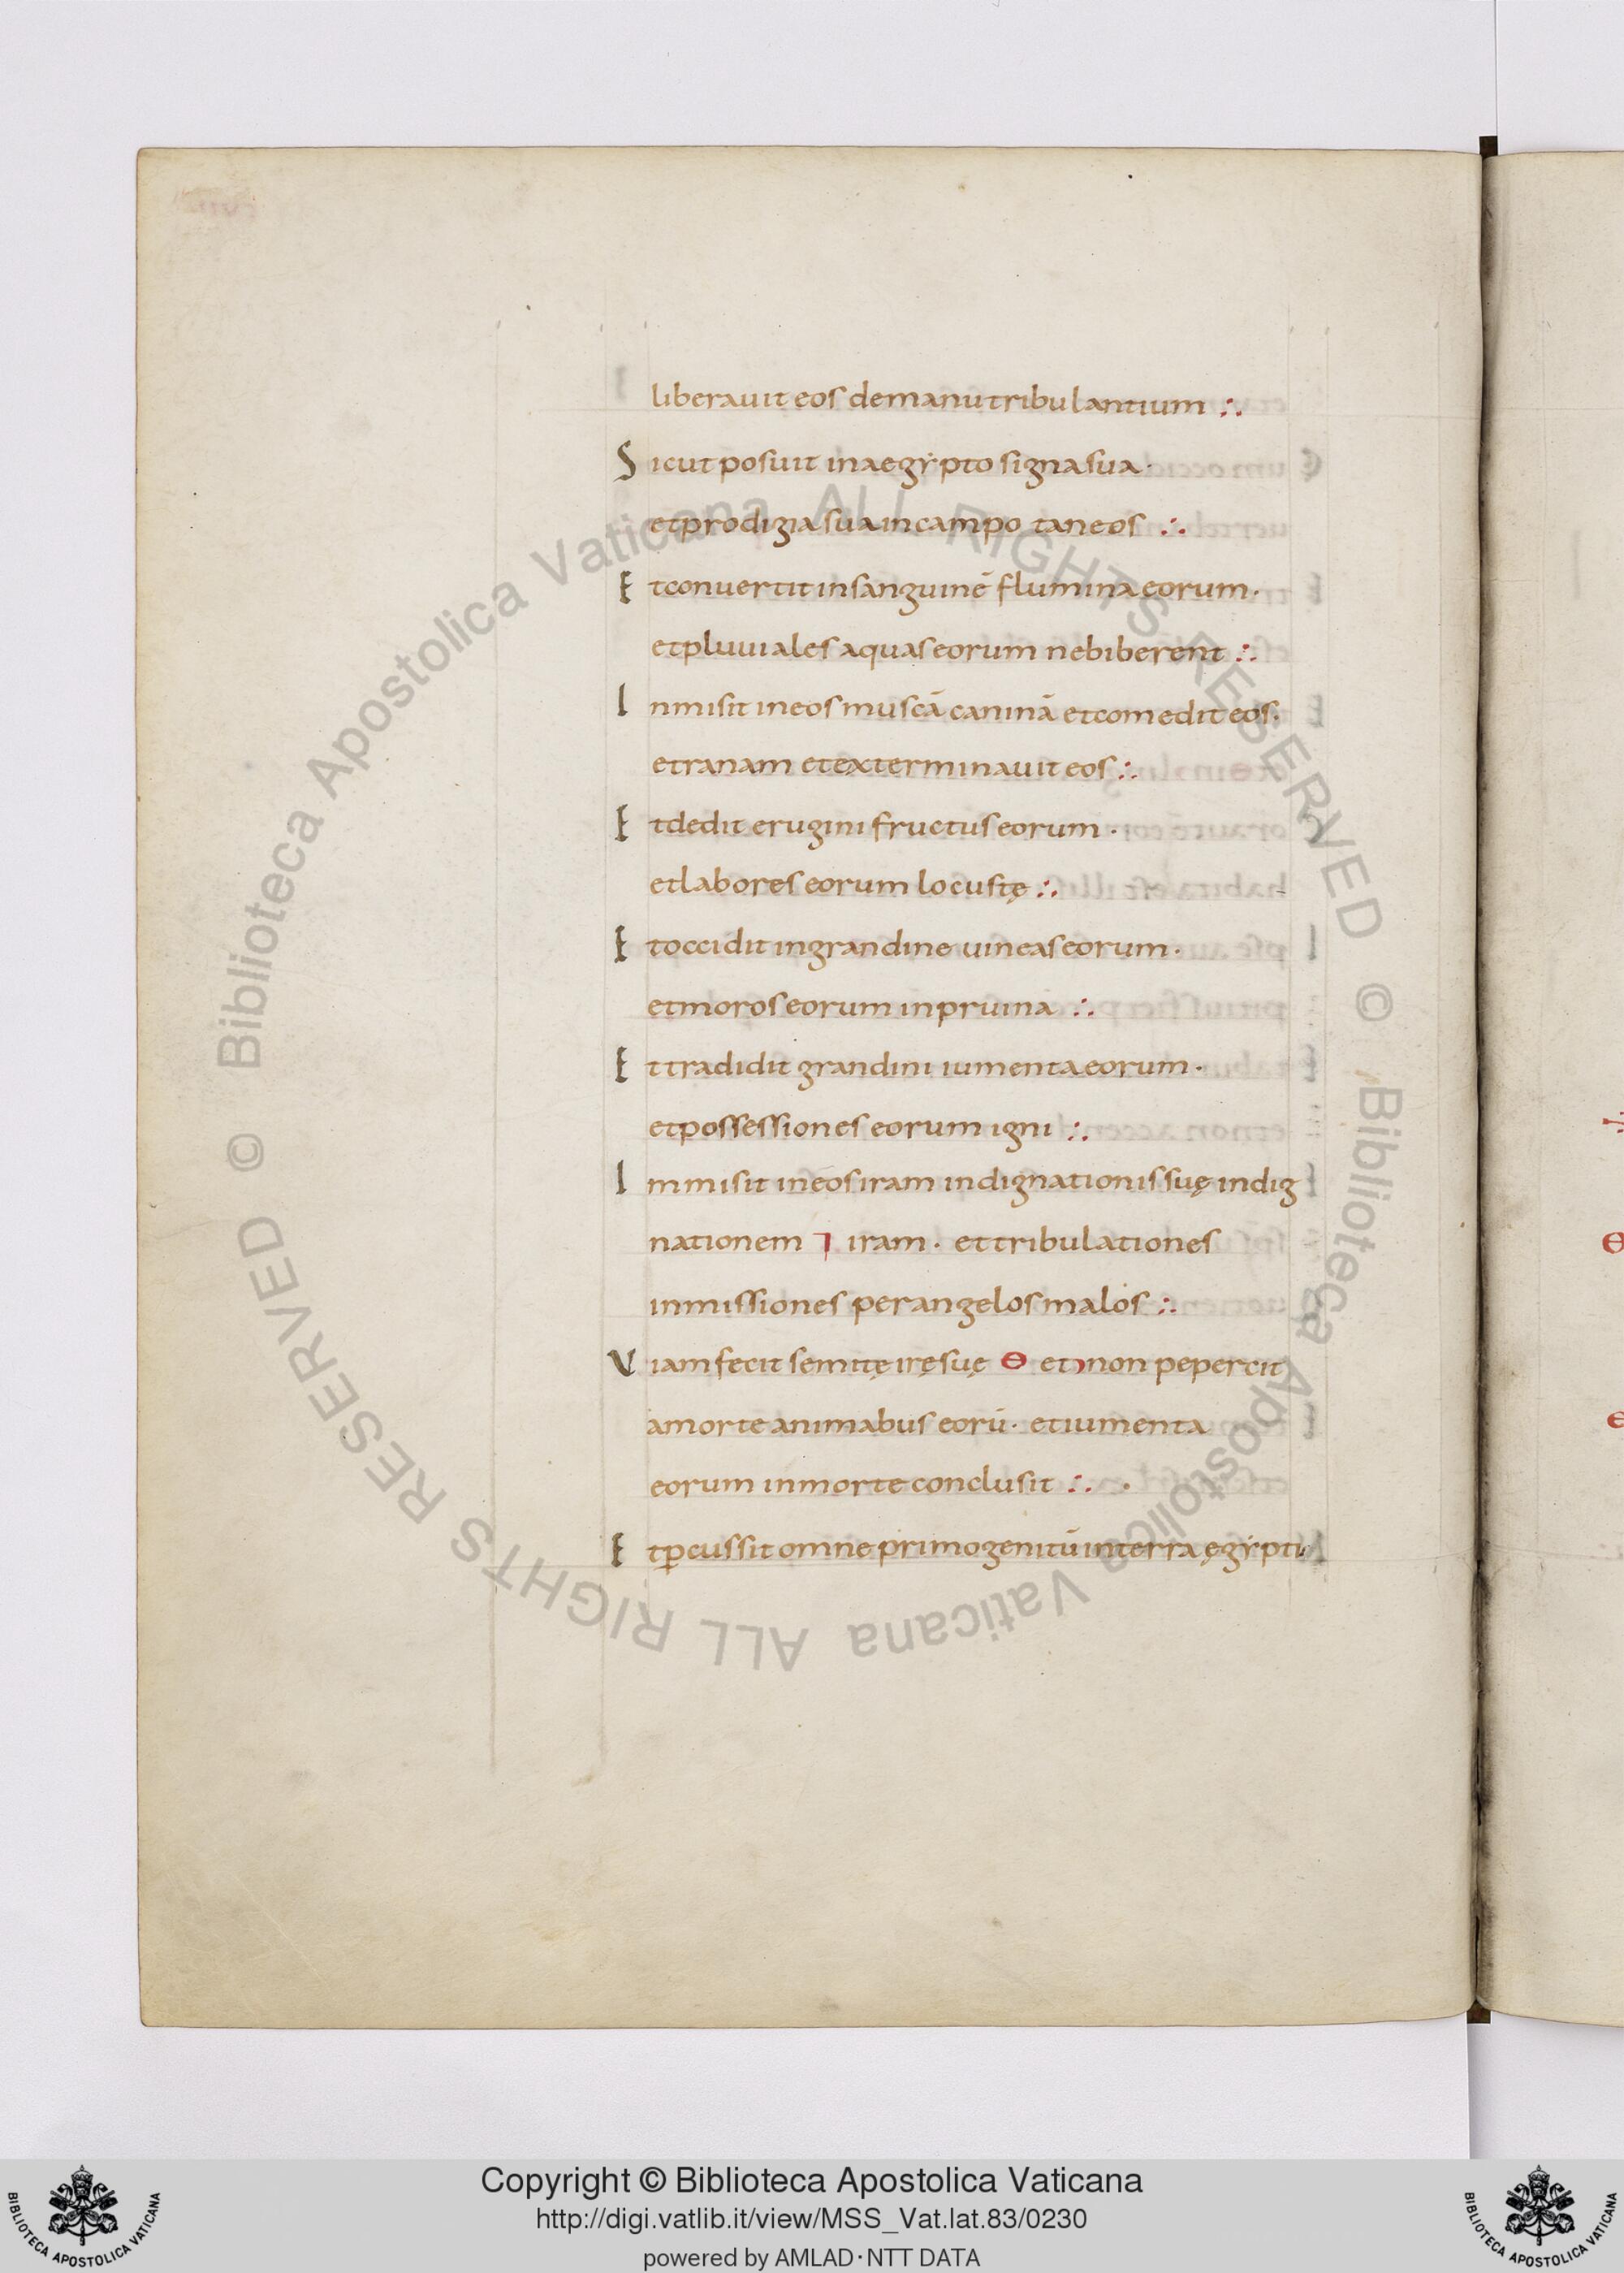 liberauit eos demanutribulantium ∴
Sicut posuit inaegẏpto signasua·
etprodigiasuaincampo taneos ∴
Etconuertit insanguinē flumina eorum·
etpluuiales aquas eorum nebiberent ∴
Inmisit ineos muscā caninā etcomedit eos·
etranam etexterminauit eos ∴
Etdedit erugini fructus eorum·
etlabores eorum locustę ∴
Etoccidit ingrandine uineas eorum·
etmoros eorum inpruina ∴
Ettradidit grandini iumenta eorum·
etpossessiones eorum igni ∴
Immisit ineos iram indignationis suę indig
nationem ⁊ iram· ettribulationes
inmissiones perangelos malos ∴
Viam fecit semitę irę suę Θ et non pepercit
amorte animabus eorū· etiumenta
eorum inmorte conclusit ∴
Etꝑcussit omne primogenitū interra ęgẏpti
© Biblioteca Apostolica Vaticana ALL RIGHTS RESERVED
© Biblioteca Apostolica Vaticana ALL RIGHTS RESERVED
Copyright © Biblioteca Apostolica Vaticana
http://digi.vatlib.it/view/MSS_Vat.lat.83/0230
powered by AMLAD·NTT DATA
BIBLIOTECA APOSTOLICA VATICANA
BIBLIOTECA APOSTOLICA VATICANA